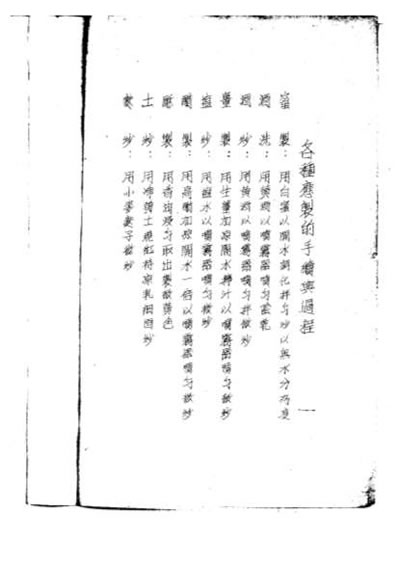 各種應製的手續與過程
蜜製：用白蜜以開水調化拌勻炒以無水分為度
酒洗：用黃酒以噴霧器噴勻
酒炒：用黃酒以噴霧器噴勻拌微炒
薑製：用生薑加涼開水拌汁以噴霧器噴勻微炒
鹽炒：用鹽水以噴霧器噴勻微炒
醋製：用高醋加涼開水一倍以噴霧器噴勻微炒
用香油浸勻取出製微黃色
土炒：用淨黃土
炒：用小麥麥子微炒
一